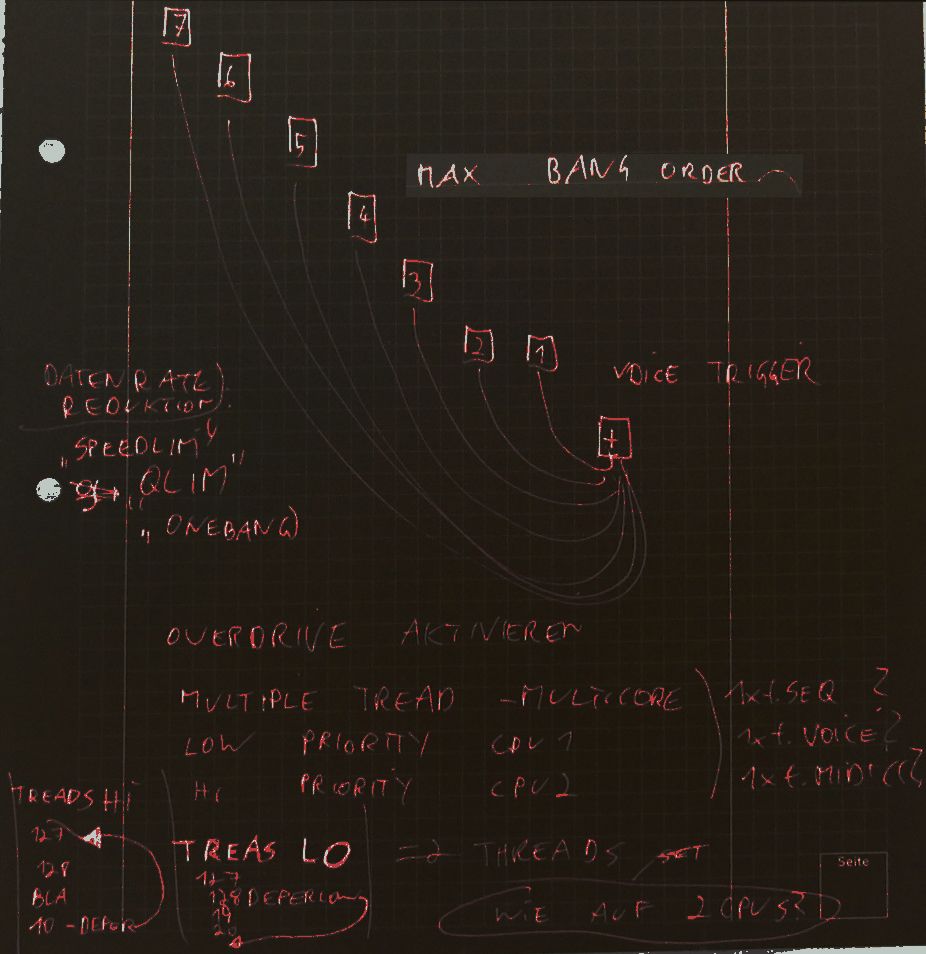 7
6
5
MAX BANG ORDER
4
3
2
1
VOICE TRIGGER
+
DATENRATE
REDUKTION.
"SPEEDLIM"
"QLIM"
"ONEBANG)
OVERDRIVE AKTIVIEREN
MULTIPLE TREAD - MULTICORE
LOW PRIORITY CPU 1
Hi PRIORITY CPU 2
1x f. SEQ ?
1x f. VOICE?
1x f. MIDI CC?
TREADS Hi
127
128
BLA
10 - DEFER
TREAS LO
127
128 DEFERLOW
19
20
=2 THREADS SET
WIE AUF 2 CPUS?
Seite